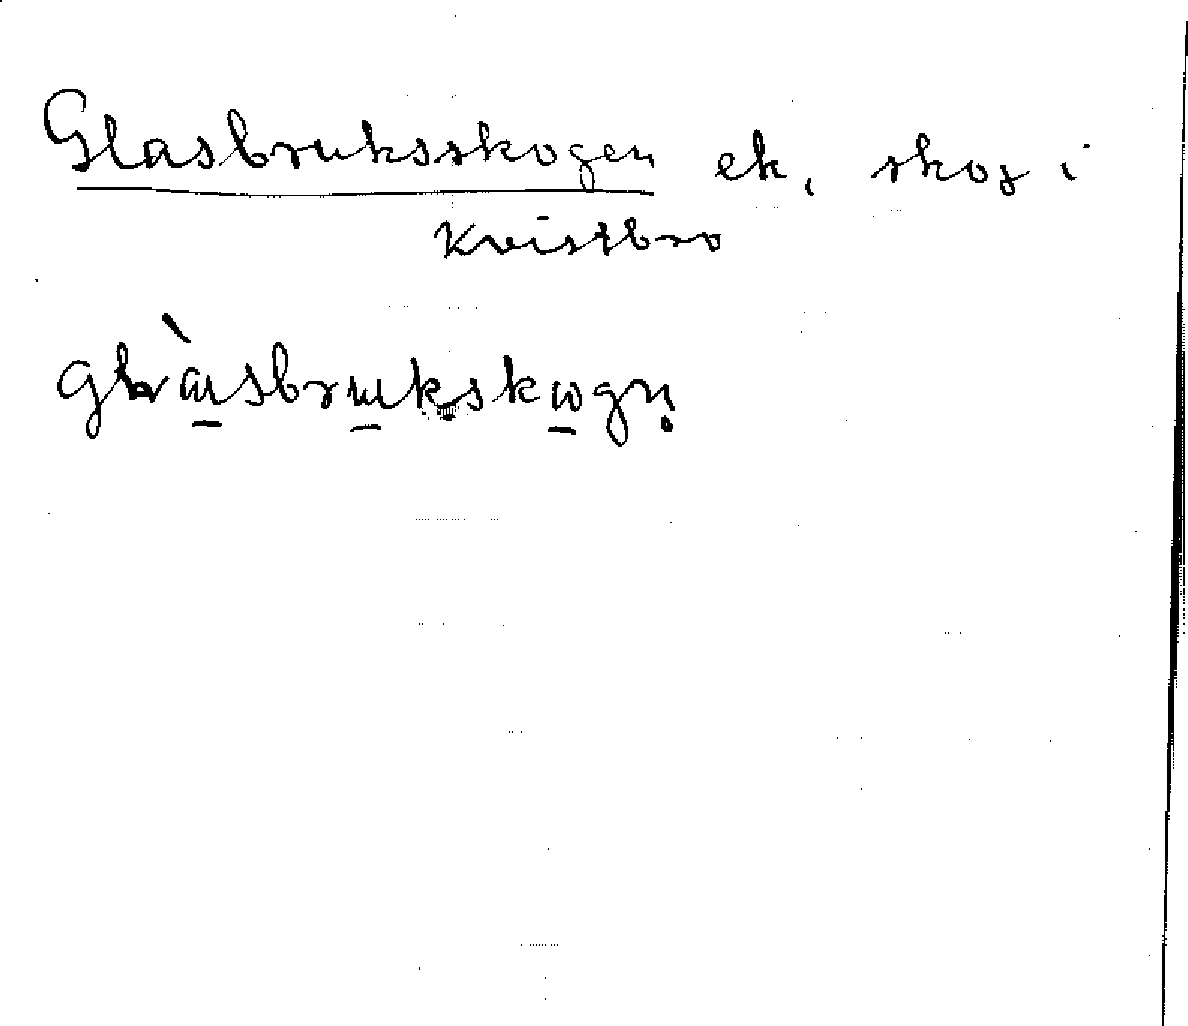 Glasbruksskogen ek, skog i
Kvistbro